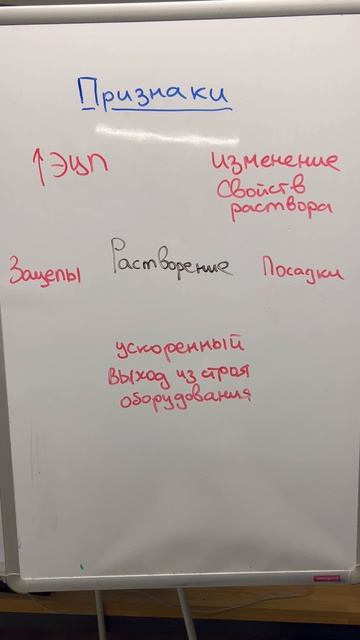 Признаки
↑ ЭЦП
Изменение
свойств
раствора
Зацепы
Растворение
Посадки
ускоренный
выход из строя
оборудования